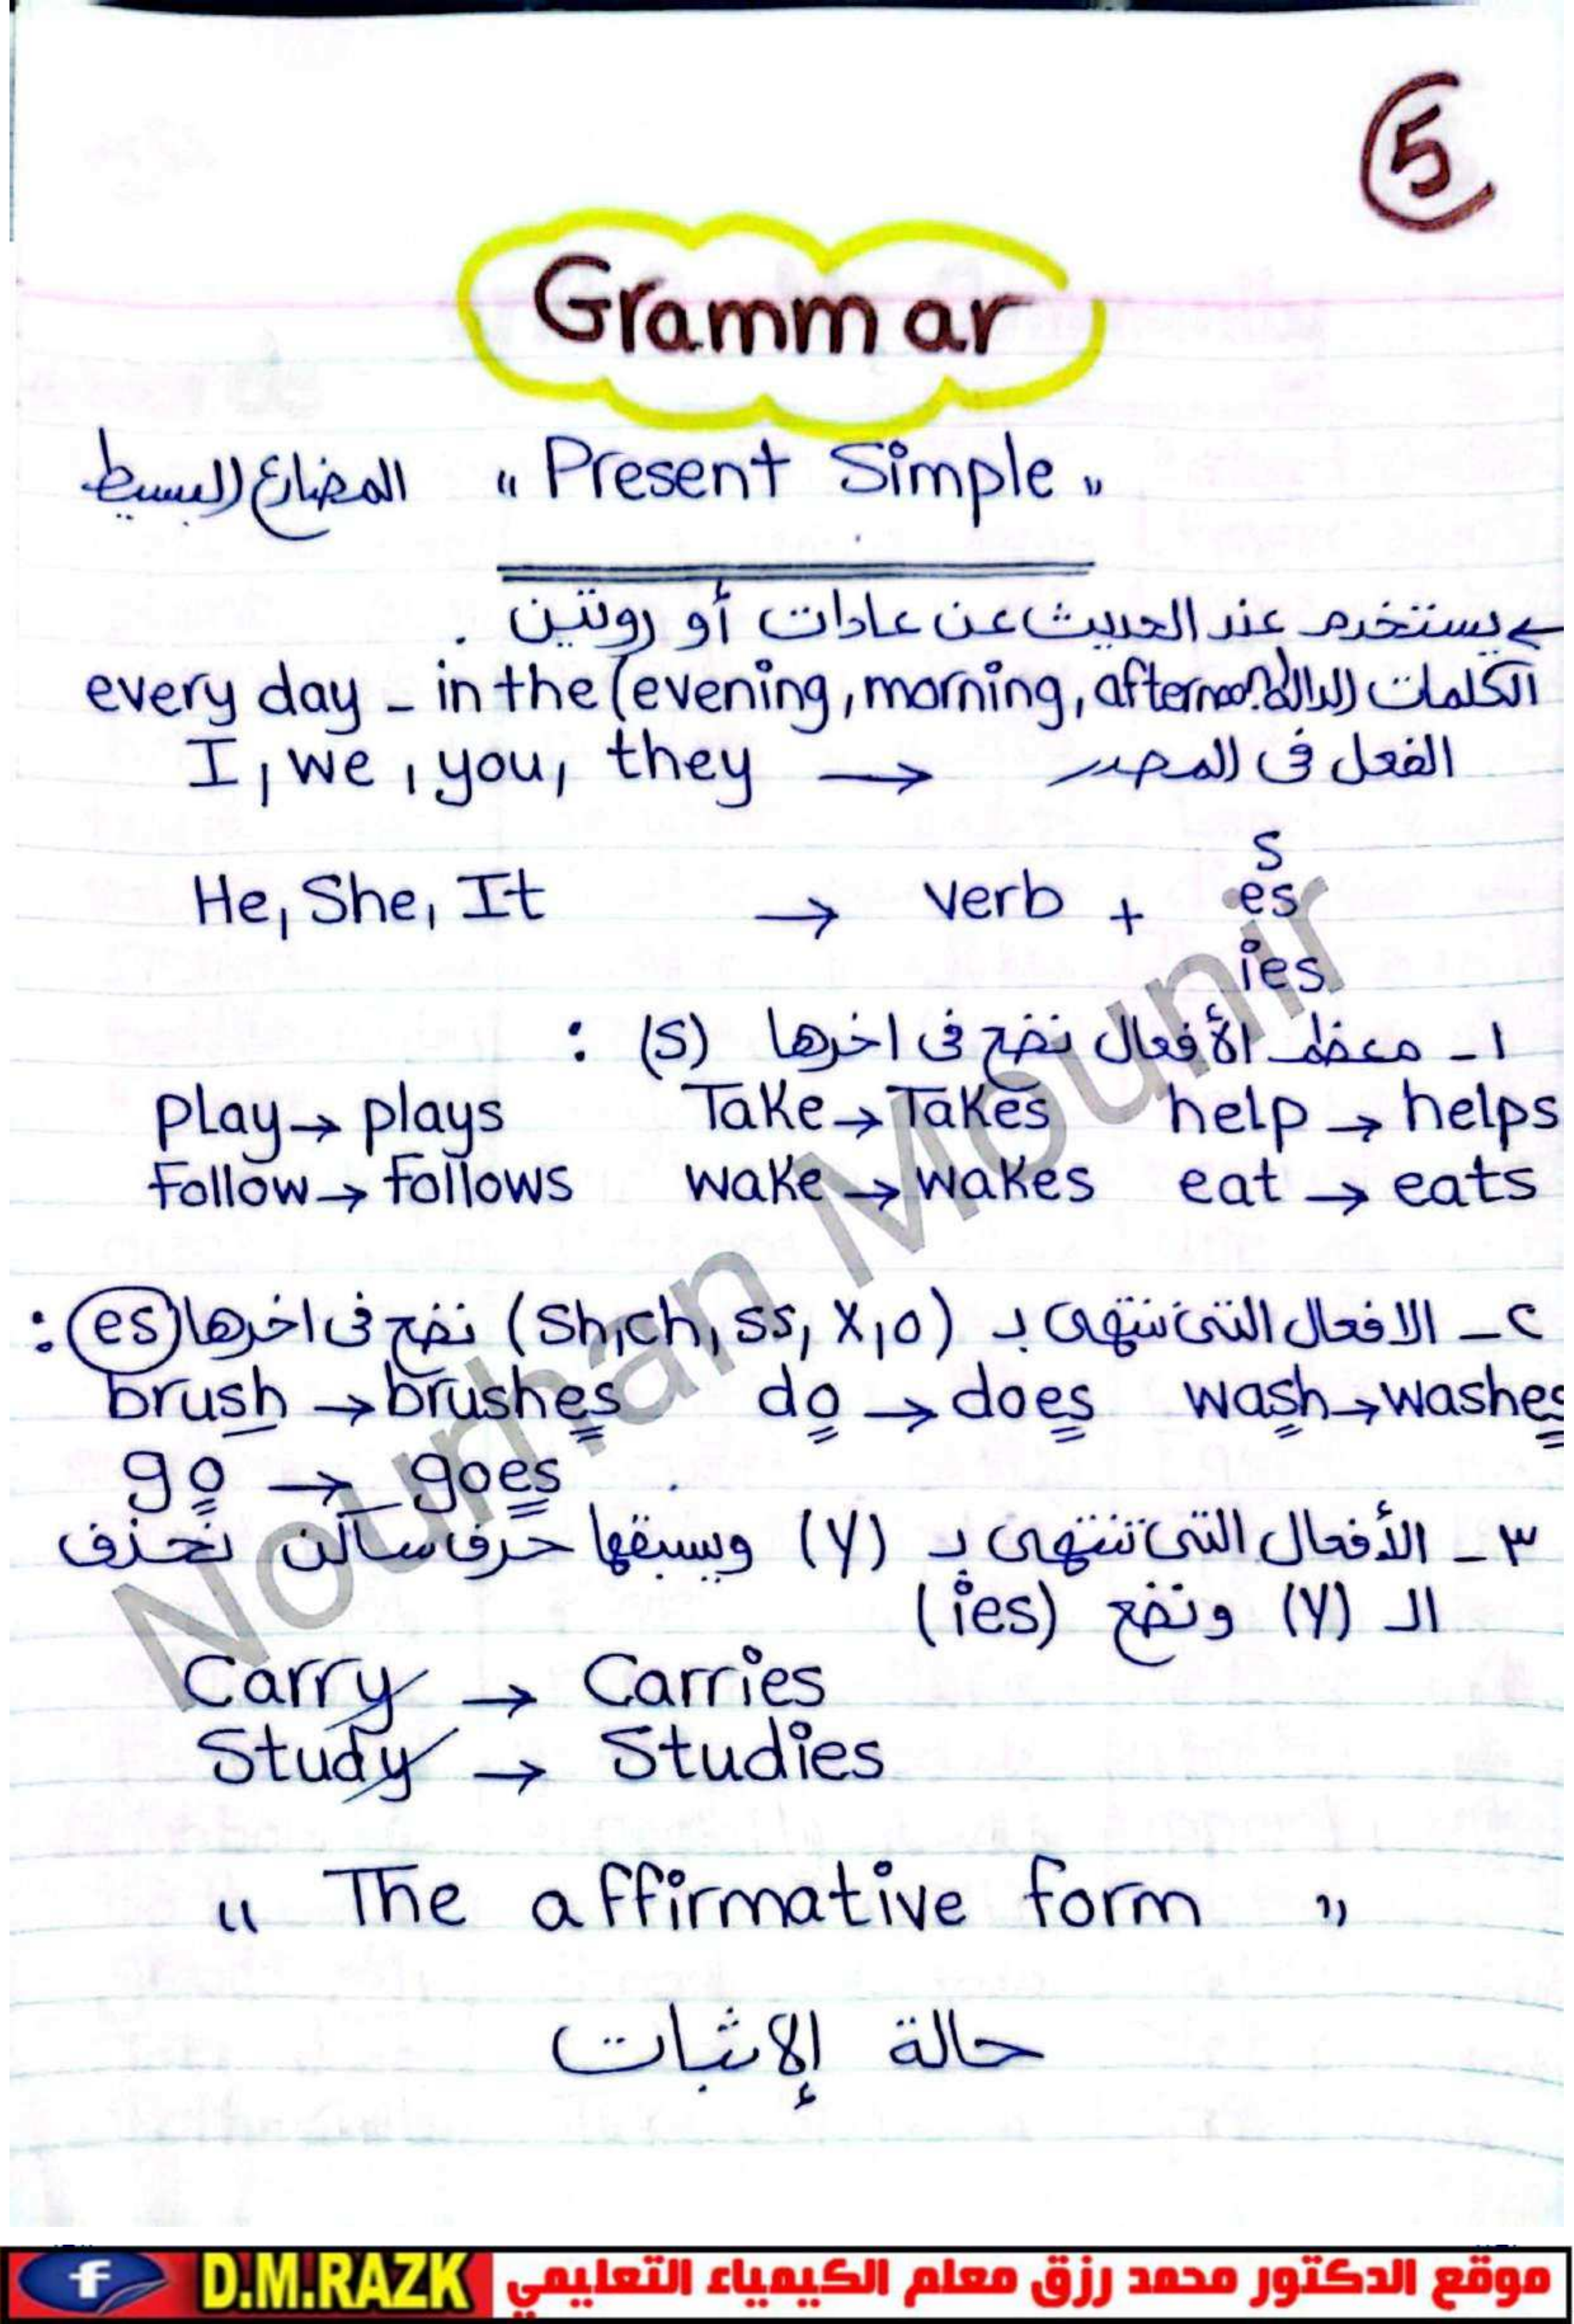 5
Grammar
المضارع البسيط " Present Simple "
يستخدم عند الحديث عن عادات أو روتين .
الكلمات الدالة every day - in the (evening, morning, afternoon)
I, we, you, they → الفعل فى المصدر
He, She, It → verb + s
es
ies
١- معظم الأفعال نضع فى اخرها (s) :
play → plays Take → Takes help → helps
Follow → follows wake → wakes eat → eats
٢- الافعال التى تنتهى بـ (sh, ch, ss, x, o) نضع فى اخرها (es) :
brush → brushes do → does wash → washes
go → goes
٣- الأفعال التى تنتهى بـ (y) ويسبقها حرف ساكن نحذف
الـ (y) ونضع (ies)
Carry → Carries
Study → Studies
" The affirmative form "
حالة الإثبات
Nourhan Mounir
f D.M.RAZK موقع الدكتور محمد رزق معلم الكيمياء التعليمي